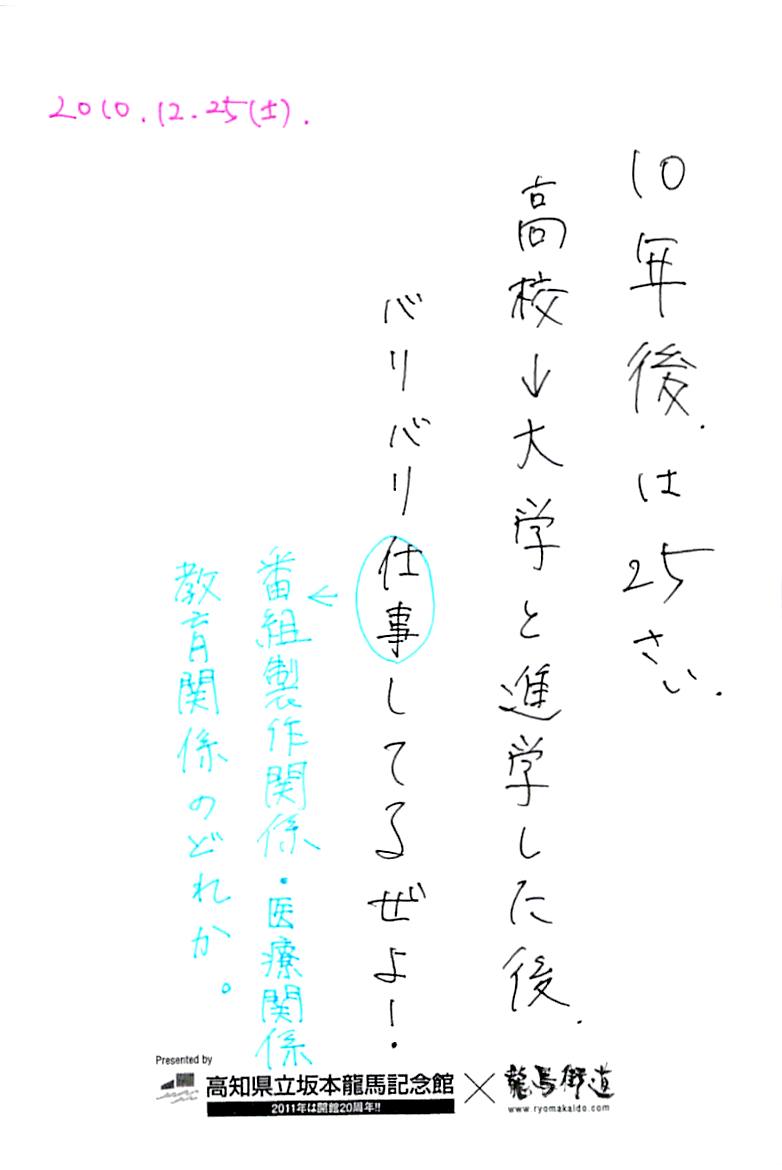 2010.12.25(土).
10年後.は25さい.
高校↓大学と進学した後.
バリバリ仕事してるぜよ!
番組製作関係・医療関係
教育関係のどれか。
Presented by
高知県立坂本龍馬記念館
2011年は開館20周年!!
×
龍馬街道
www.ryomakaido.com